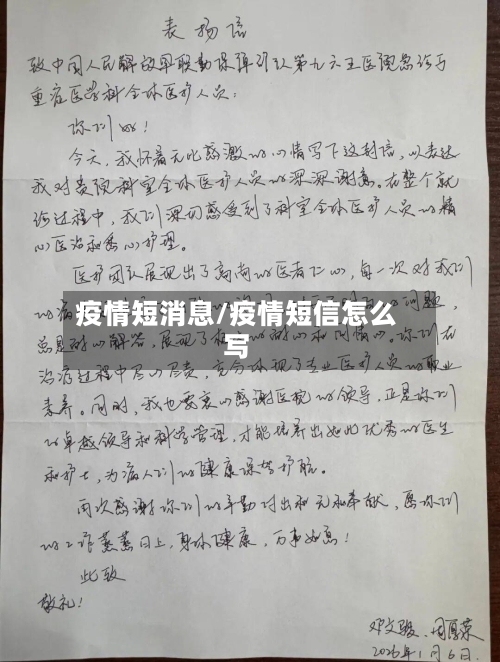 表扬信
致中国人民解放军联勤保障部队第九六五医院急诊与
重症医学科全体医护人员：
你们好！
今天，我怀着无比感激的心情写下这封信，以表达
我对贵院科室全体医护人员的深深谢意。在整个就
诊过程中，我们深切感受到了科室全体医护人员的精
心医治和悉心护理。
医护团队展现出了高尚的医者仁心，每一次对我们
的病
问题，
疫情短消息/疫情短信怎么
写
总是耐心解答，展现了极
的耐心和
心。你们在
治疗过程中尽心尽责，充分体现了专业医护人员的职业
素养。同时，我也要衷心感谢医院的领导，正是你们
的卓越领导和科学管理，才能培养出如此优秀的医生
和护士，为病人们的健康保驾护航。
再次感谢你们的辛勤付出和无私奉献，愿你们
的工作蒸蒸日上，身体健康，万事如意！
此致
敬礼！
邓文骏、周厚荣
2026年1月6日